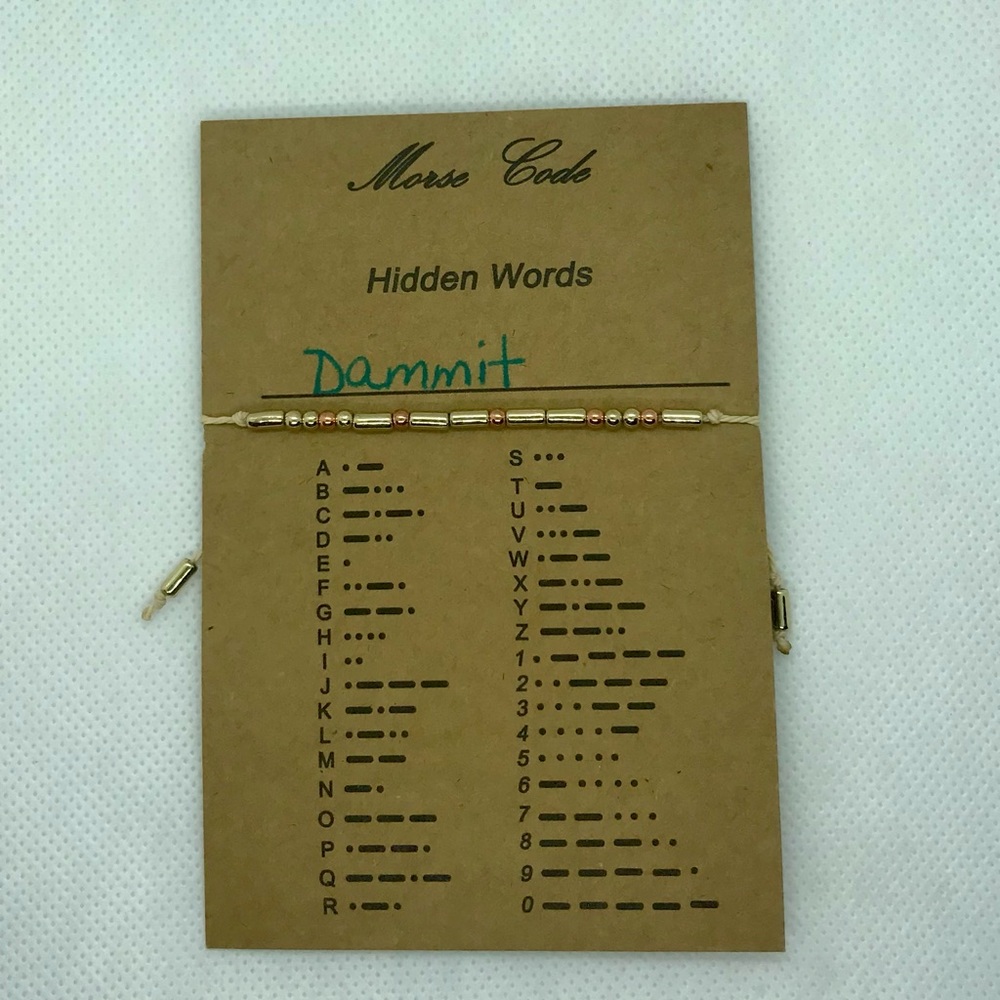 Morse Code
Hidden Words
Dammit
A ·— S ···
B —··· T —
C —·—· U ··—
D —·· V ···—
E · W ·——
F ··—· X —··—
G ——· Y —·——
H ···· Z ——··
I ·· 1 ·————
J ·——— 2 ··———
K —·— 3 ···——
L ·—·· 4 ····—
M —— 5 ·····
N —· 6 —····
O ——— 7 ——···
P ·——· 8 ———··
Q ——·— 9 ————·
R ·—· 0 —————